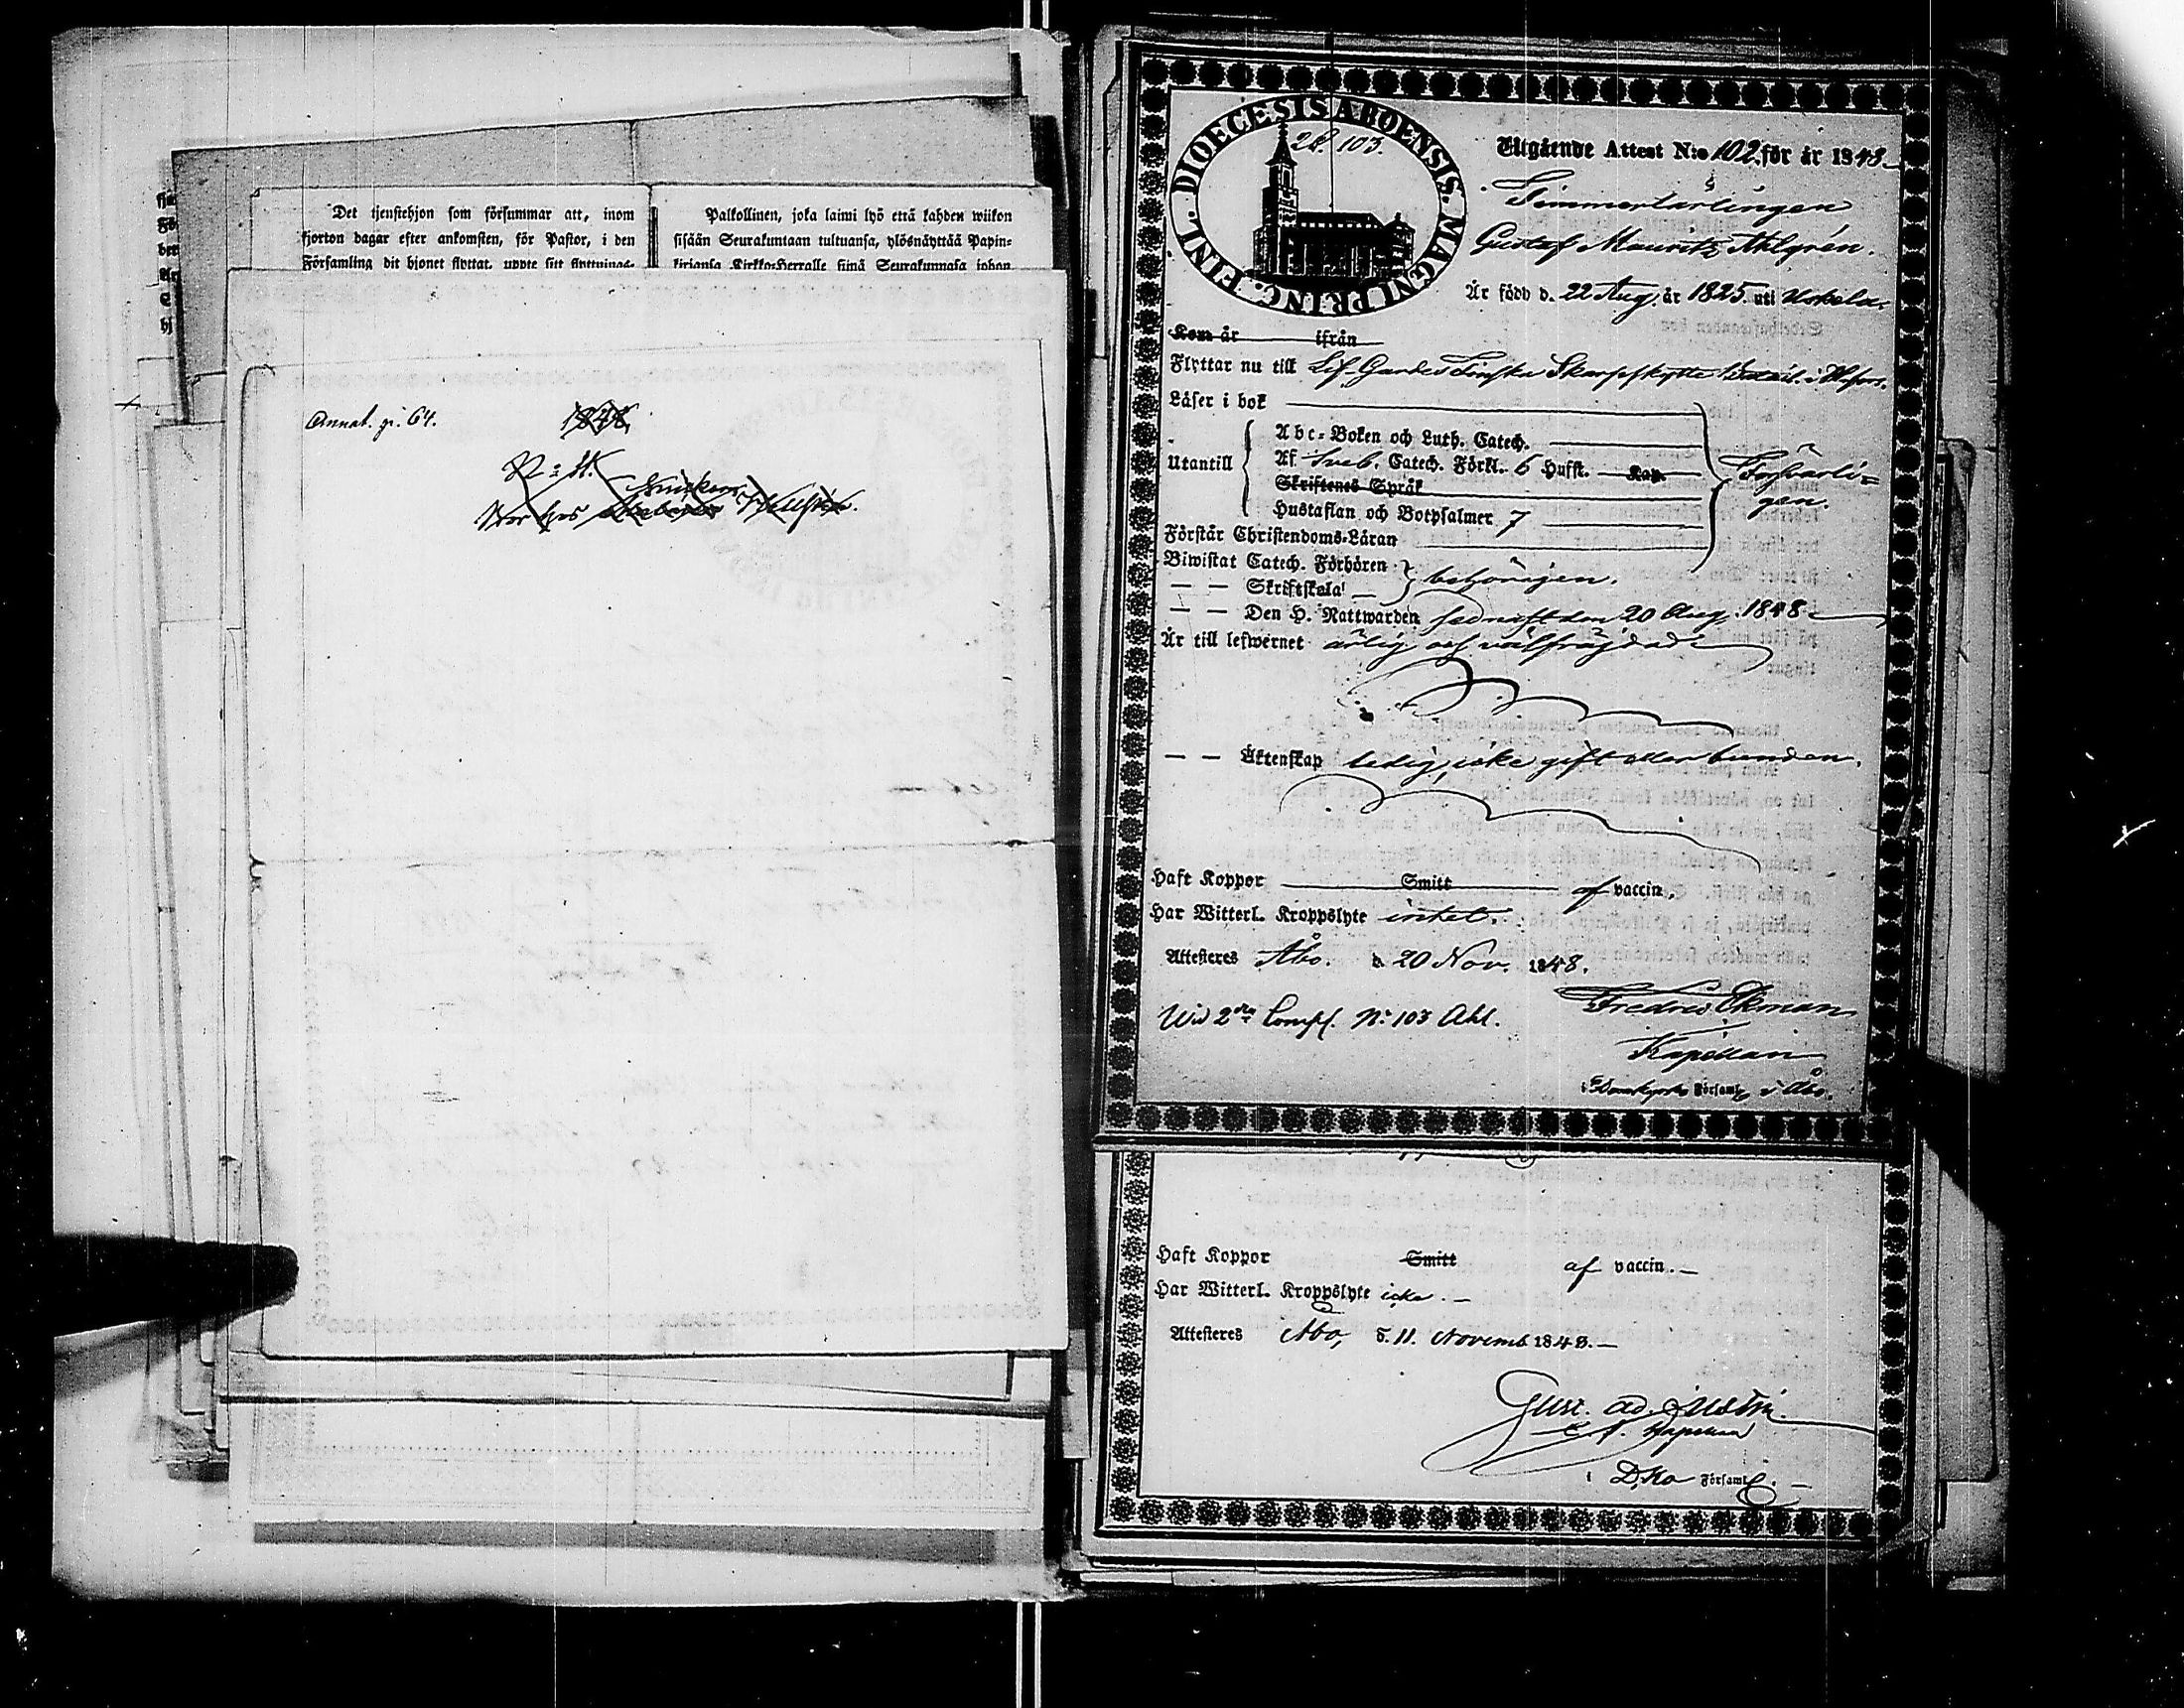 Det tjenstehjon som försummar att, inom
fjorton dagar efter ankomsten, för Pastor, i den
Församling dit hjonet flyttat, uppte sitt flyttnings-
Palkollinen, joka laimi lyö että kahden wiikon
sisään Seurakuntaan tultuansa, ylösnäyttää Papin-
kirjansa Kirkko-Herralle siinä Seurakunnasa johon
Annot. p. 64.
1848.
DIOECESIS ABOENSIS. MAGNI PRINC. FINL.
2Q. 103.
Utgående Attest N:o 102. för år 1848.
Timmerkarlingen
Gustaf Mauritz Ahlgrén.
Är född d. 22 Aug. år 1825. uti Uskela.
Kom år ifrån
Flyttar nu till Lif-Gardes Finska Skarpskytte Batail. i H:fors.
Läser i bok
Abc-Boken och Luth. Catech.
Utantill Af Sveb. Catech. Förkl. 6 Hufst. Kap. Försvarli=
Skriftenes Språk gen.
Hustaflan och Botpsalmer 7
Förstår Christendoms-Läran
Biwistat Catech. Förhören behörigen.
— — Skriftskola
— — Den H. Nattwarden sednast den 20 Aug. 1848
Är till lefwernet ärlig och välfrägdad
— — Äktenskap ledig, icke gift eller bunden.
Haft Koppor Smitt af vaccin.
Har Witterl. Kroppslyte intet.
Attesteres Åbo. d. 20 Nov. 1848.
Fredric Ekman
Wid 2dra Compl. N:o 103 Ahl.
Kapellan
i Domkyrko Församl i Åbo.
Haft Koppor Smitt af vaccin.—
Har Witterl. Kroppslyte icke.—
Attesteres Åbo, d. 11. Novemb 1848.—
Gust. Ad.
i D.Ko Församl.